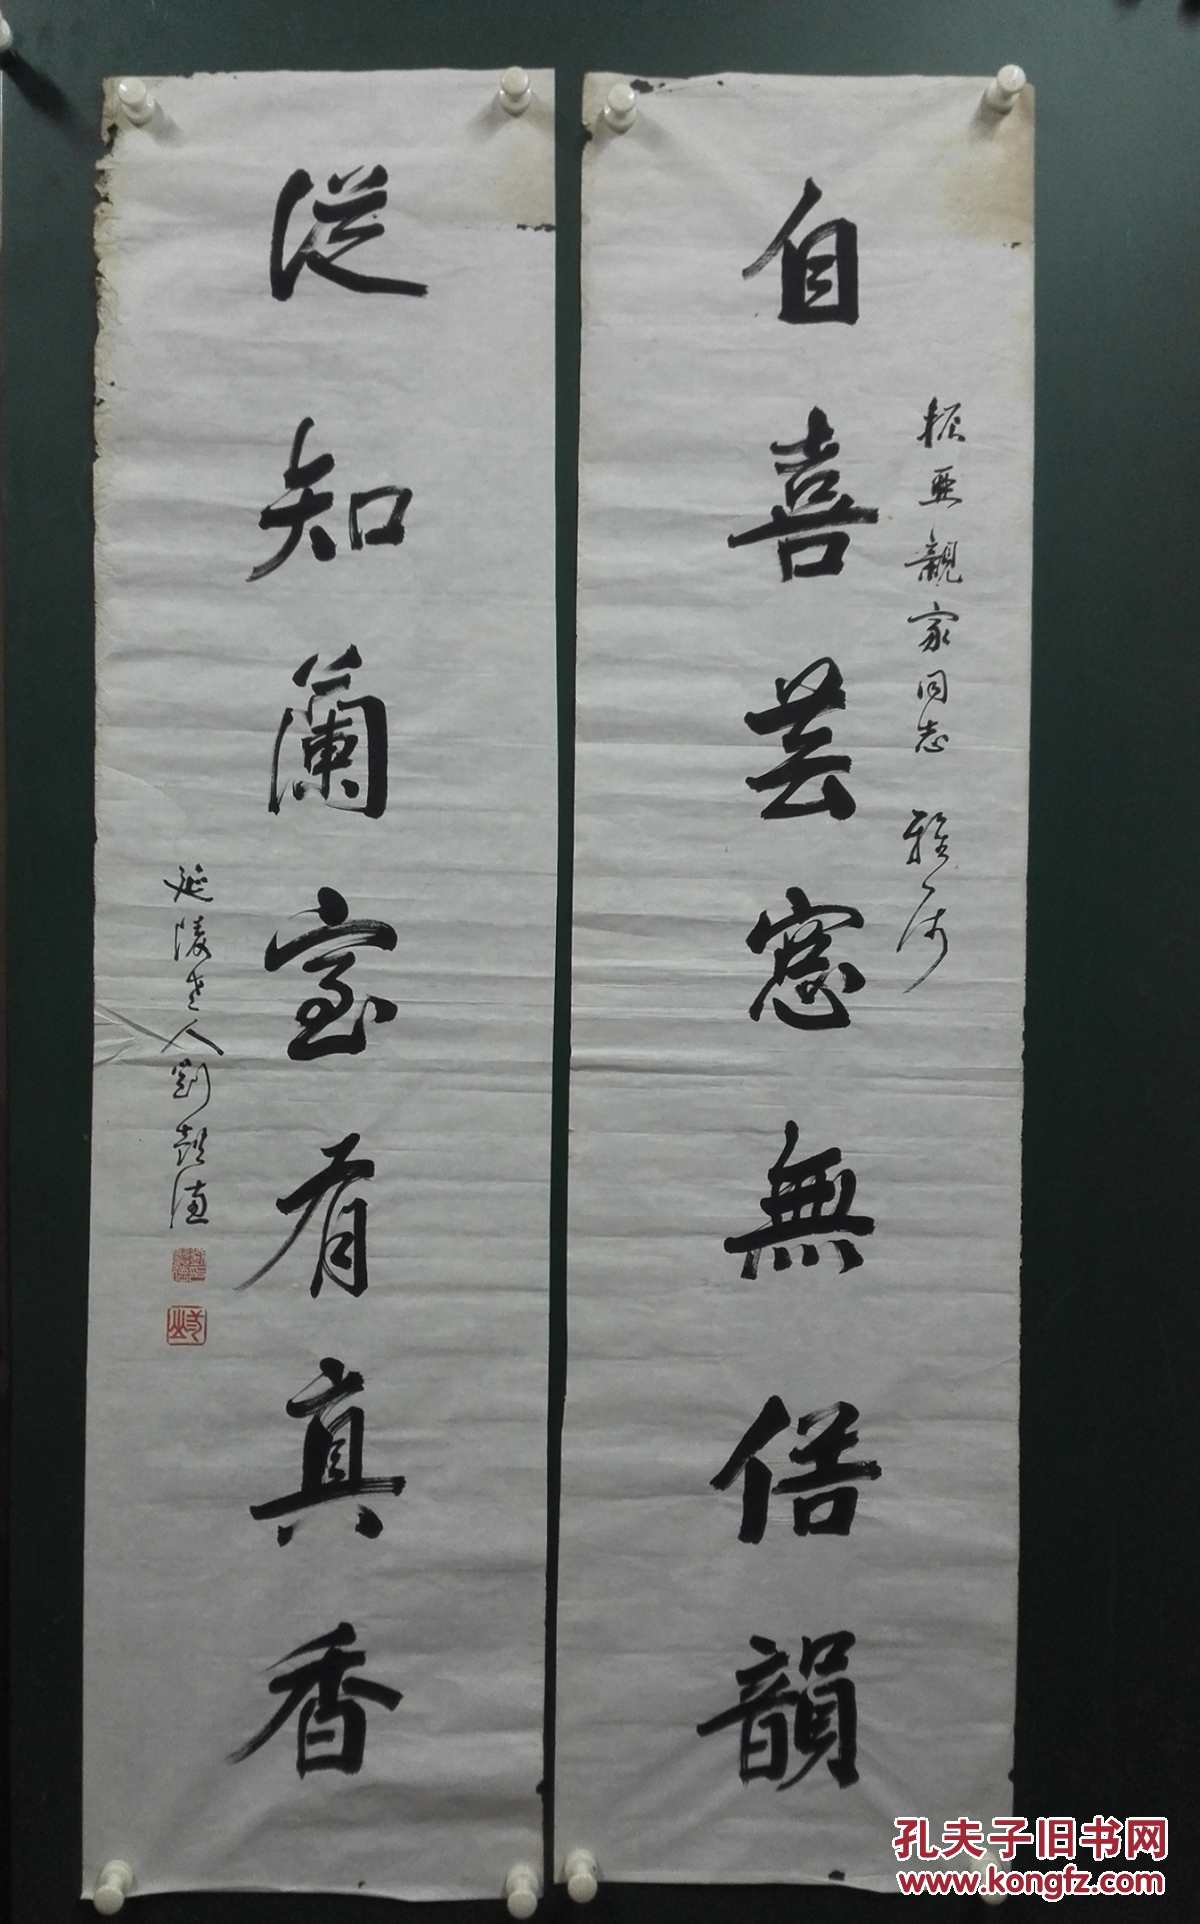 振亞親家同志 雅属
自喜芸窓無俗韻
從知蘭室有真香
延陵老人劉懿德
孔夫子旧书网
www.kongfz.com